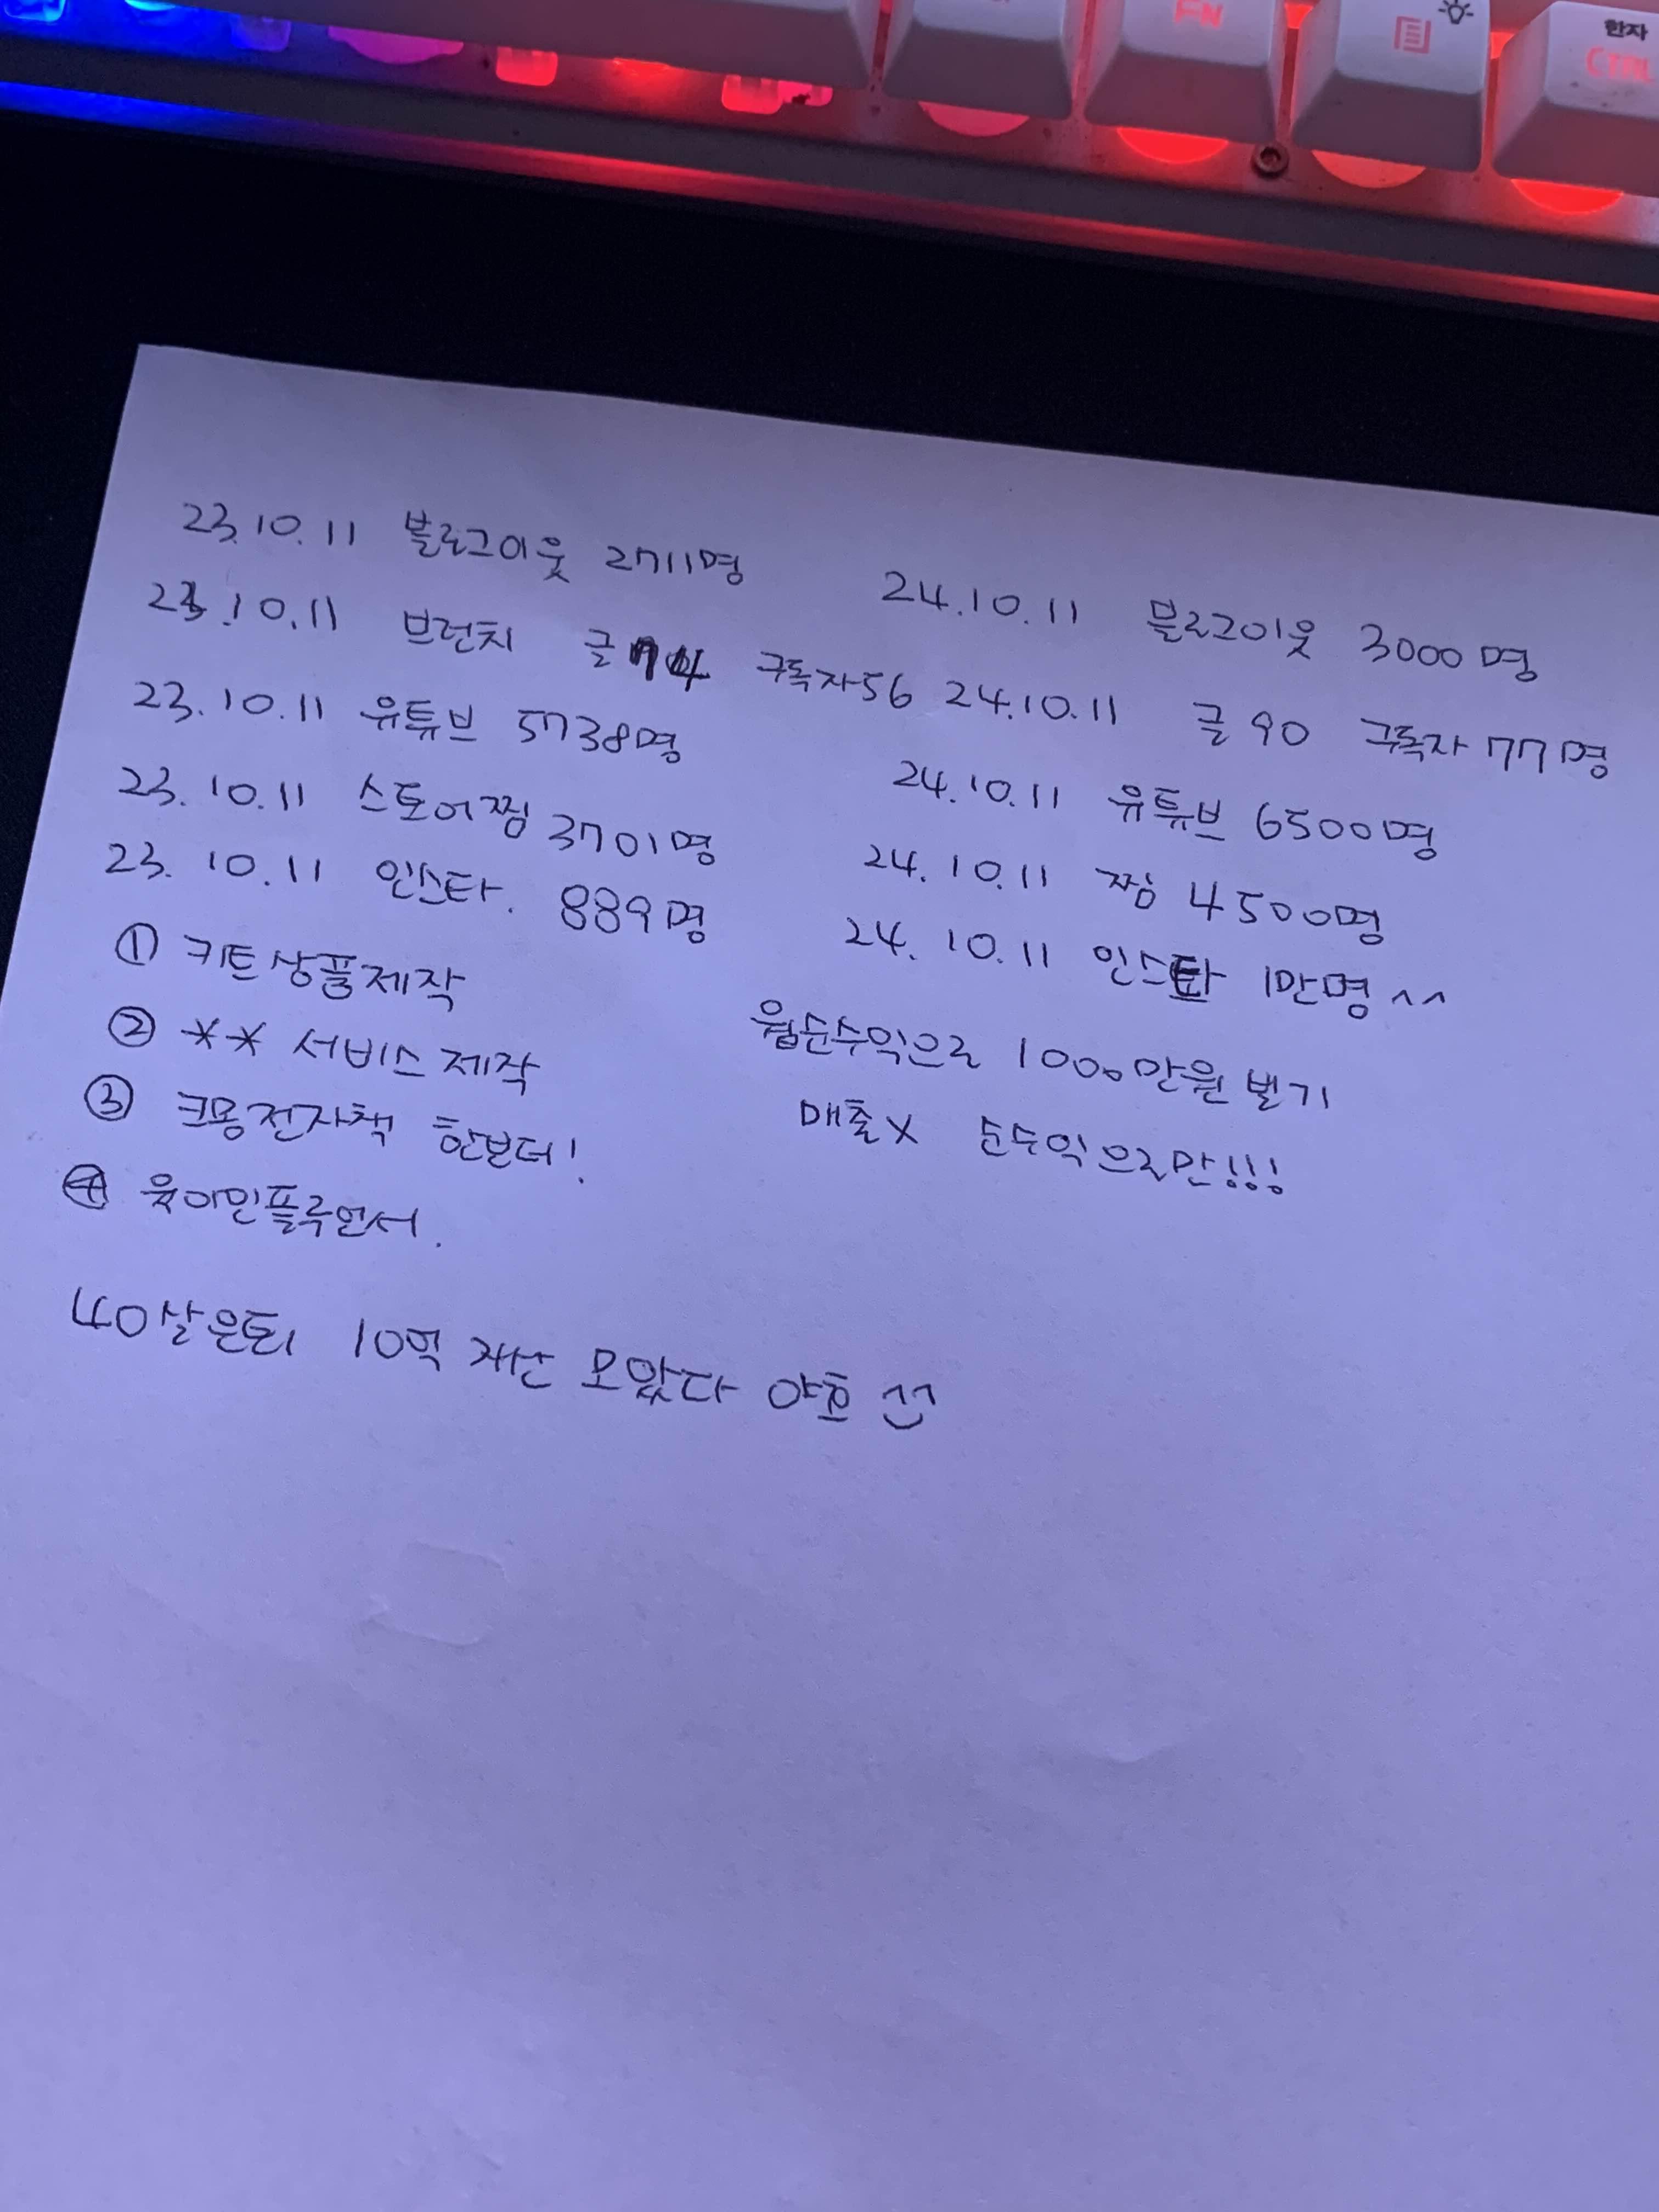 FN
한자
CTRL
23.10.11 블로그이웃 2711명 24.10.11 블로그이웃 3000명
23.10.11 브런치 글 74 구독자56 24.10.11 글 90 구독자 77명
23.10.11 유튜브 5738명 24.10.11 유튜브 6500명
23.10.11 스토어찜 3701명 24.10.11 찜 4500명
23.10.11 인스타. 889명 24.10.11 인스타 1만명^^
① 키트상품제작 월순수익으로 1000만원 벌기
② ** 서비스제작 매출X 순수익으로만!!!
③ 크몽전자책 한번더!
④ 육아인플루언서.
40살은퇴 10억 자산 모았다 야호